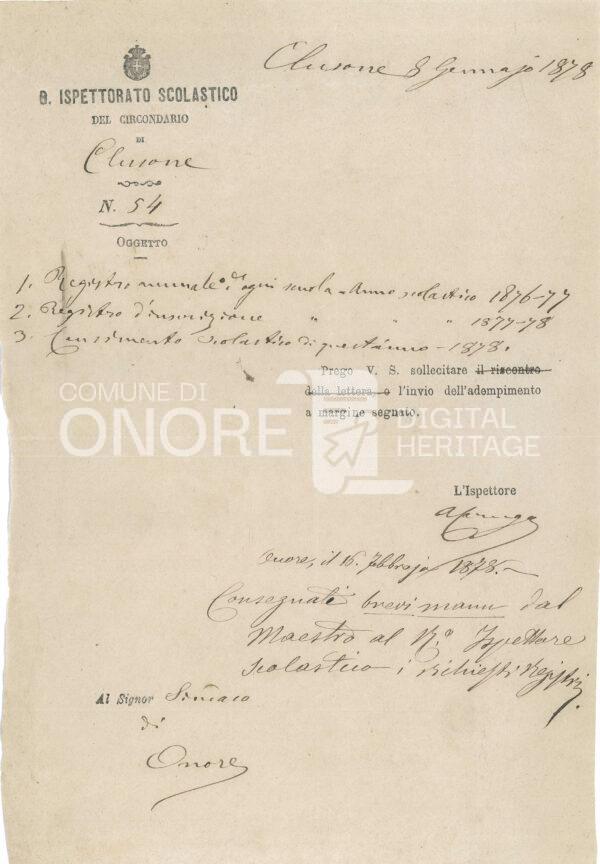 Clusone 8 Gennajo 1878
R. ISPETTORATO SCOLASTICO
DEL CIRCONDARIO
DI
Clusone
N. 54
OGGETTO
1. Registro annuale d'ogni scuola - Anno scolastico 1876-77
2. Registro d'inscrizione " " " 1877-78
3. Censimento scolastico di quest'anno - 1878.
Prego V. S. sollecitare il riscontro
della lettera, o l'invio dell'adempimento
a margine segnato.
COMUNE DI
ONORE
DIGITAL
HERITAGE
L'Ispettore
Onore, il 16. Febbrajo 1878.-
Consegnati brevi manu dal
Maestro al R.o Ispettore
scolastico i richiesti Registri.
Al Signor Sindaco
di
Onore